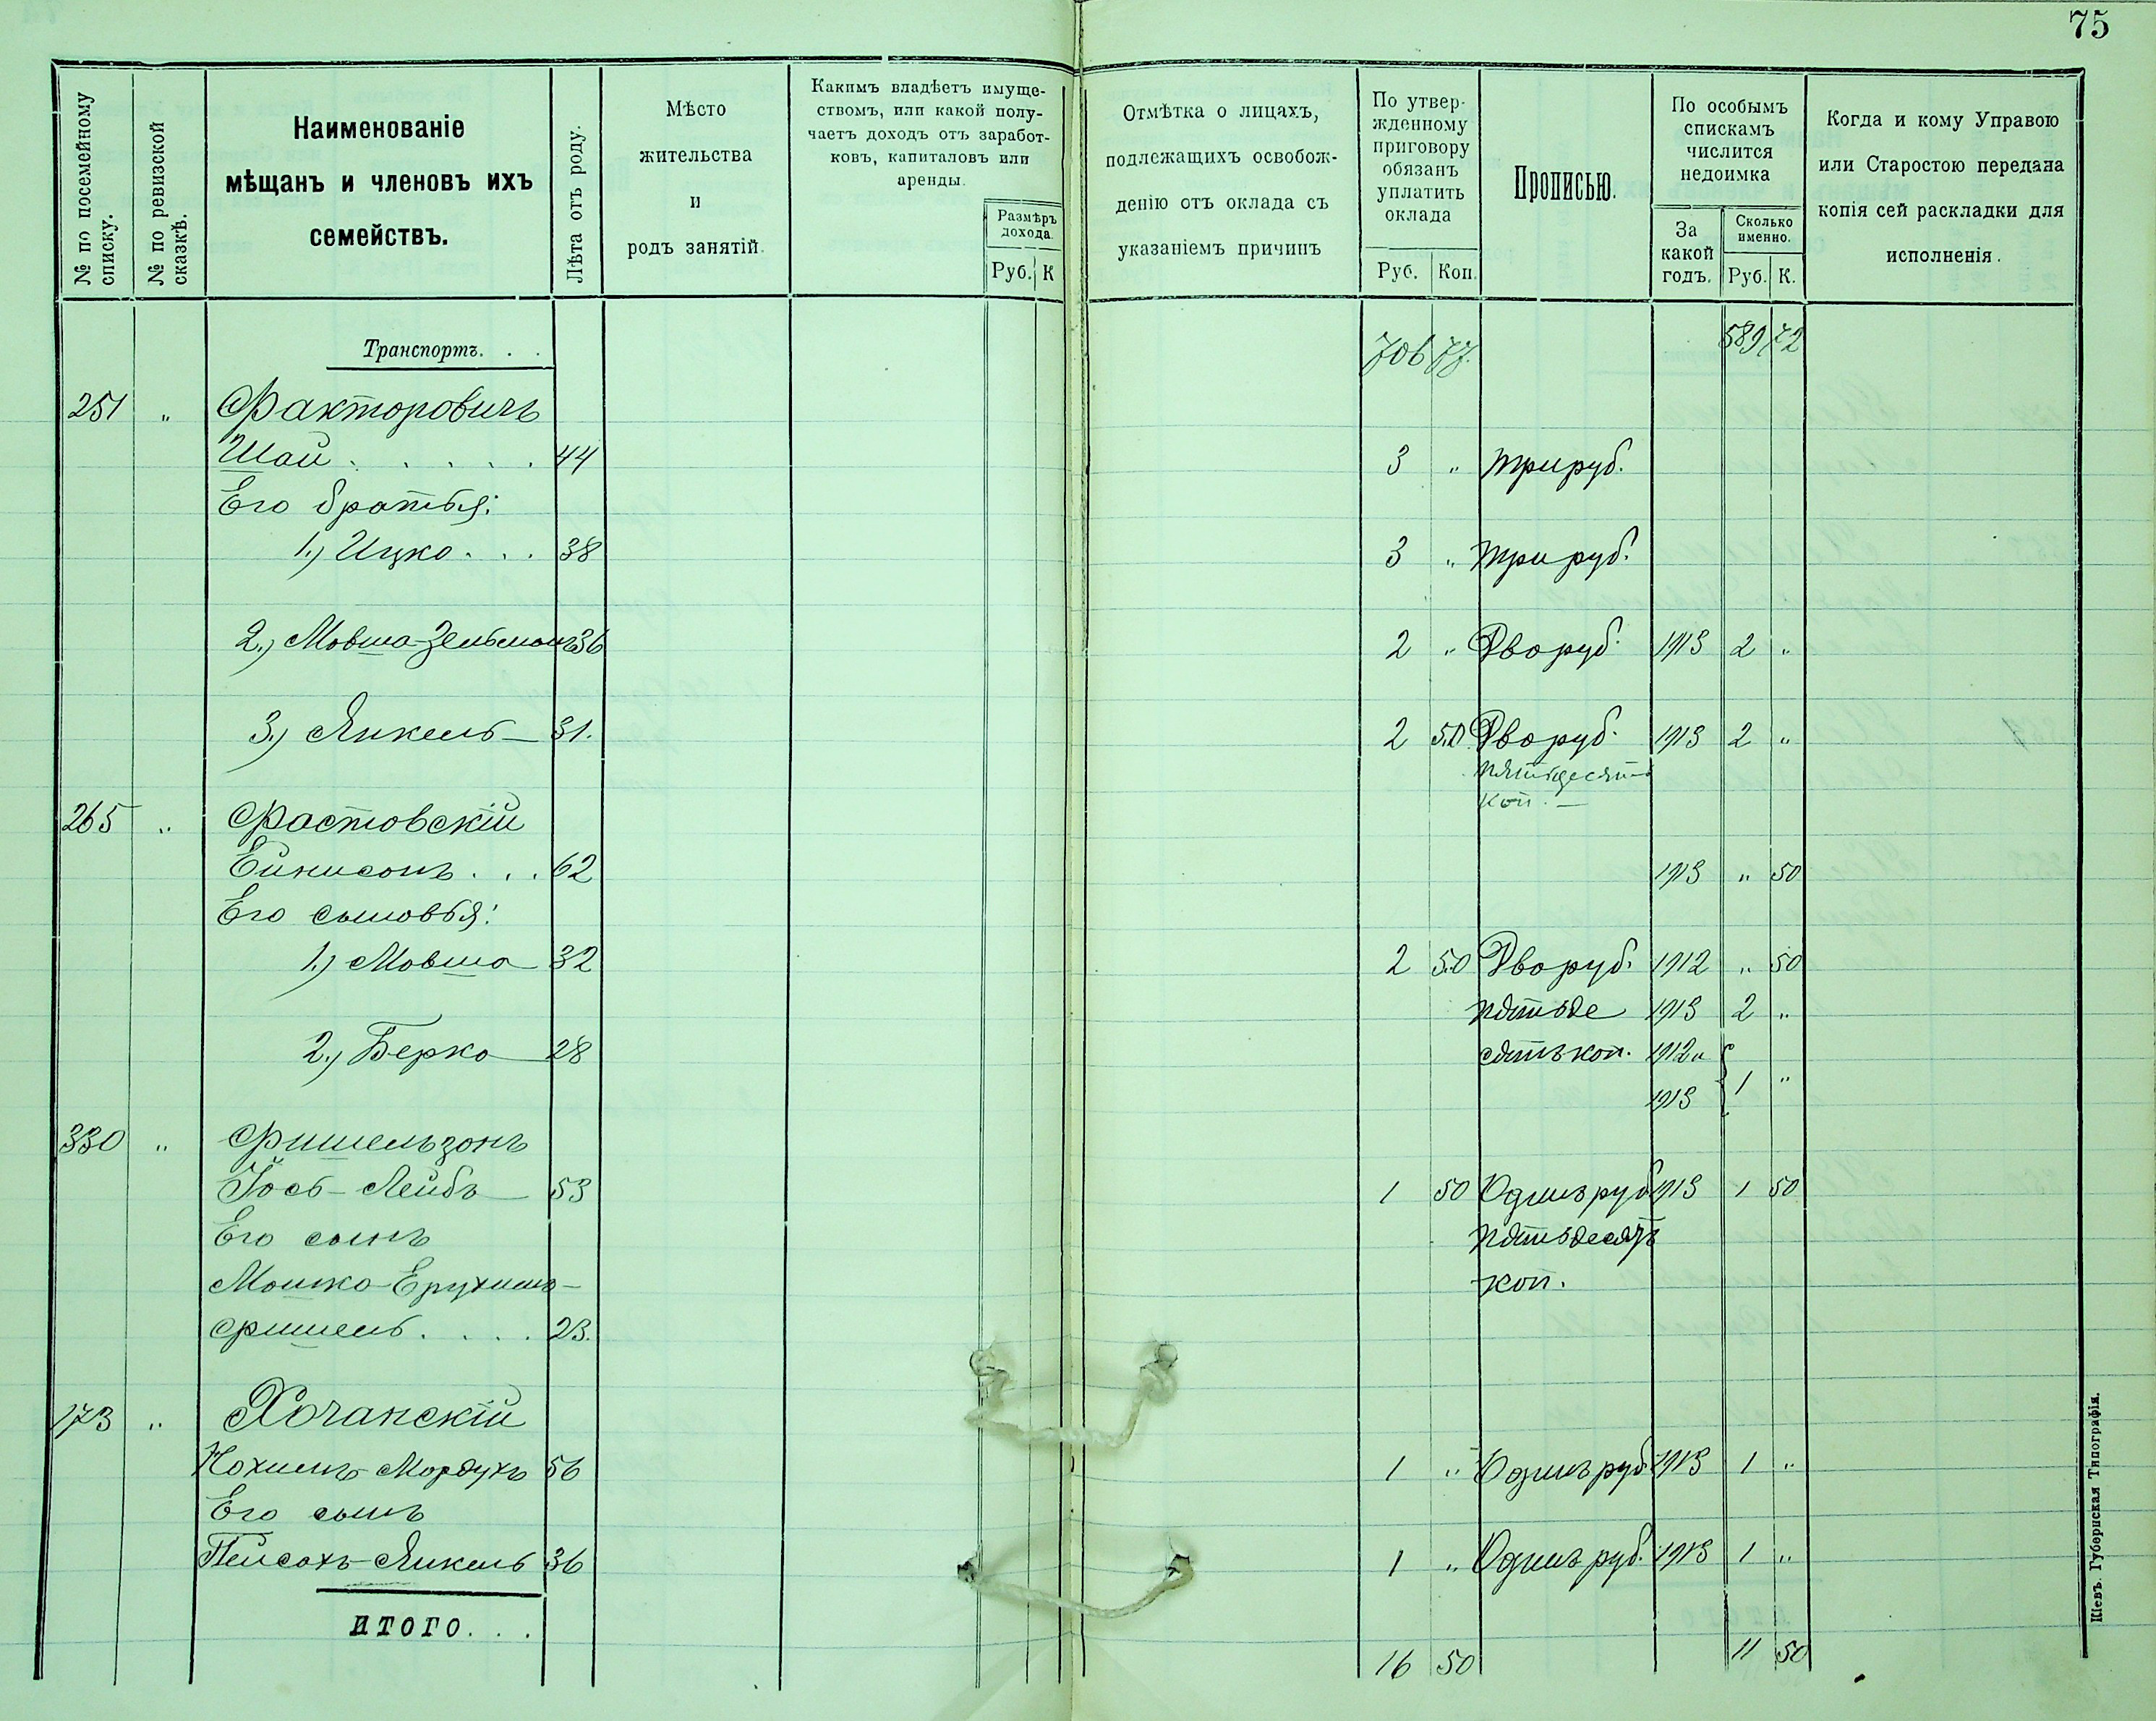 75
№ по посемейному списку.
№ по ревизской сказкѣ.
Наименованіе
мѣщанъ и членовъ ихъ
семействъ.
Лѣта отъ роду.
Мѣсто
жительства
и
родъ занятій.
Какимъ владѣетъ имуще-
ствомъ, или какой полу-
чаетъ доходъ отъ заработ-
ковъ, капиталовъ или
аренды.
Размѣръ
дохода.
Руб. К
Отмѣтка о лицахъ,
подлежащихъ освобож-
денію отъ оклада съ
указаніемъ причинъ
По утвер-
жденному
приговору
обязанъ
уплатить
оклада
Руб. Коп.
Прописью.
По особымъ
спискамъ
числится
недоимка
За
какой
годъ.
Сколько
именно.
Руб. К.
Когда и кому Управою
или Старостою передана
копія сей раскладки для
исполненія.
Транспортъ. . . 706 77. 589 72
251 " Факторовичъ
Шая . . . . . 44 3 " Три руб.
Его братья:
1.) Ицко . . . 38 3 " Три руб.
2.) Мовша-Зельманъ 36 2 " Два руб. 1913 2 "
3.) Янкель 31. 2 50 Два руб. 1913 2 "
пятьдесятъ
коп.
265 " Фастовскій
Ейнисонъ . . . 62 1913 " 50
Его сыновья:
1.) Мовша 32 2 50 Два руб. 1912 " 50
пятьде 1913 2 "
2.) Берко 28 сятъ коп. 1912 и
1913 1 "
330 " Фишельзонъ
Йось-Лейбъ 53 1 50 Одинъ руб 1913 1 50
Его сынъ пятьдесятъ
Мошко-Ерухимъ- коп.
Фишель . . . . 23.
173 " Хочанскій
Нохимъ-Мордухъ 56 1 " Одинъ руб 1913 1 "
Его сынъ
Пейсахъ-Янкель 36 1 " Одинъ руб. 1913 1 "
ИТОГО. . . 16 50 11 50
Кіевъ. Губернская Типографія.